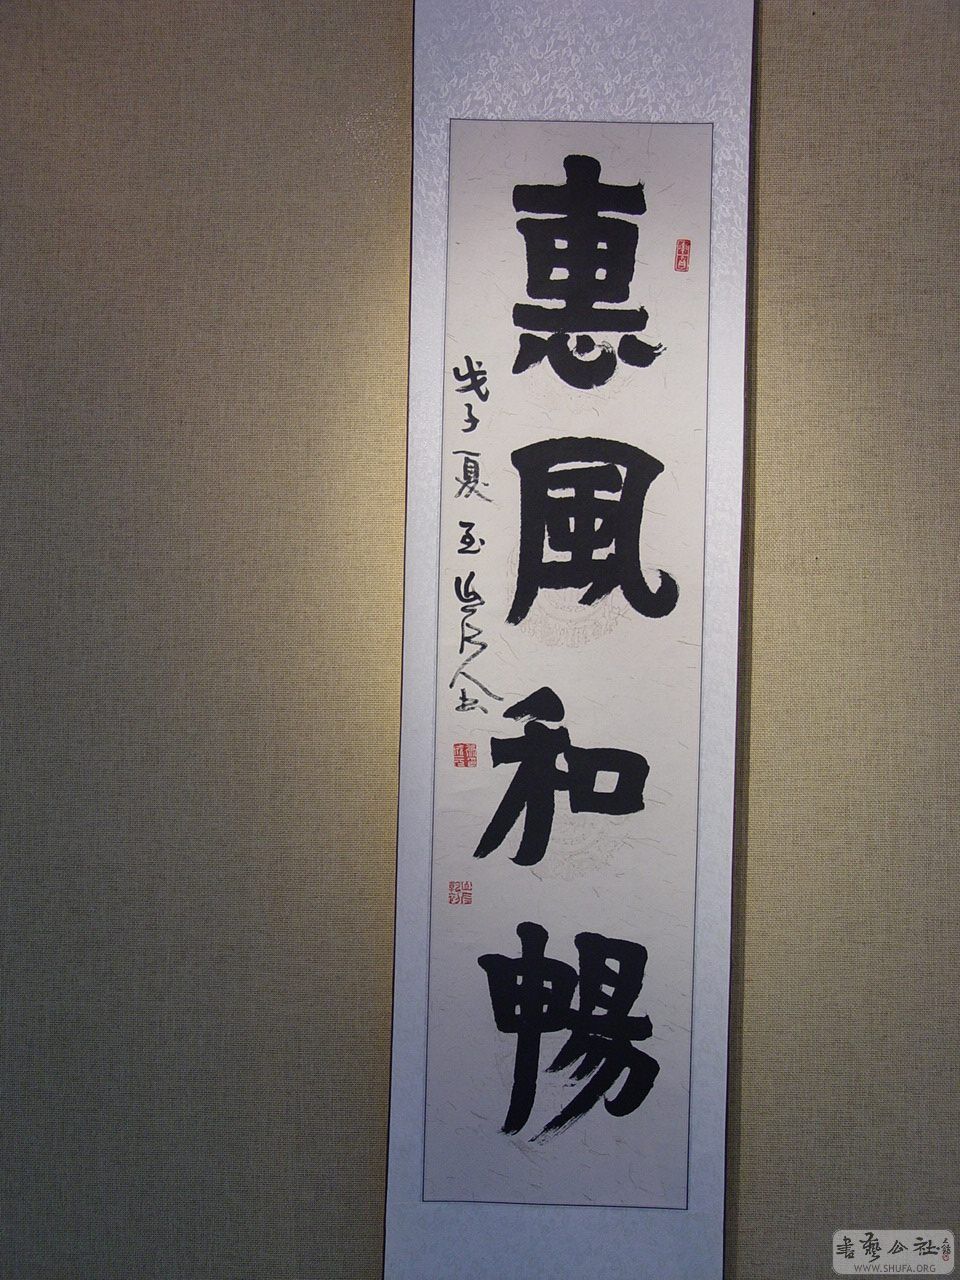 惠風和暢
戊子夏至山石人书
書藝公社
WWW.SHUFA.ORG